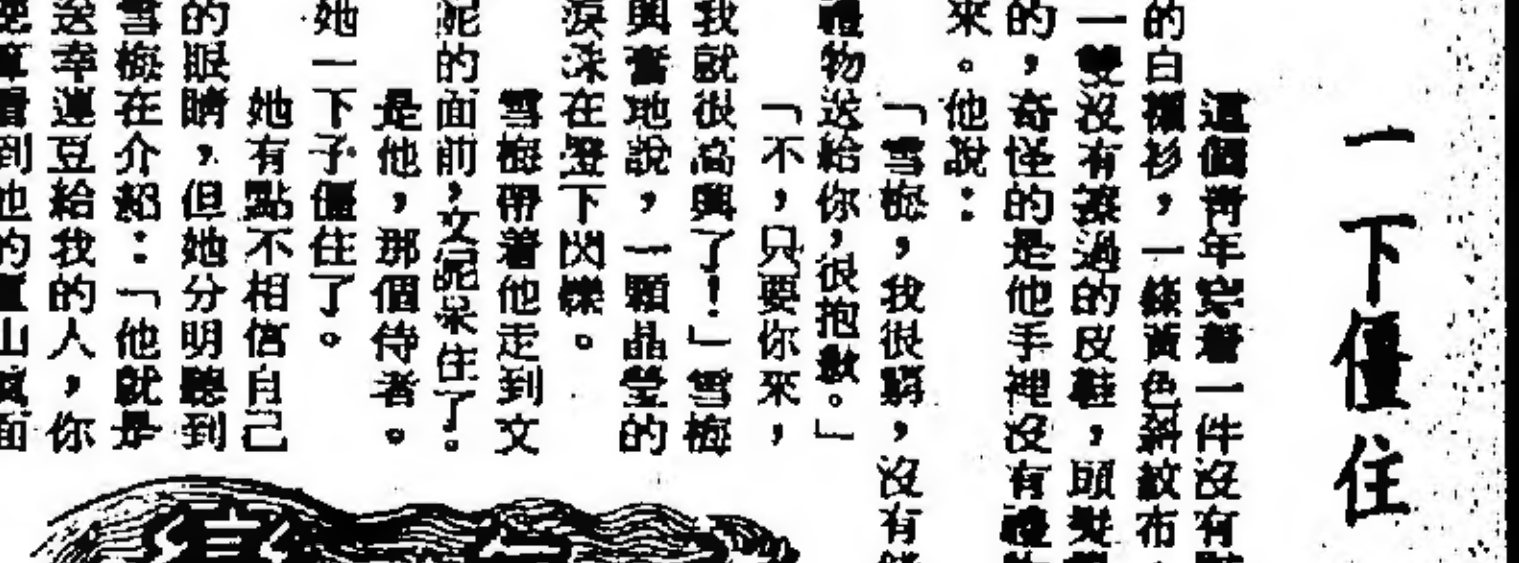 一下僵住
這個青年穿着一件沒有
的白襯衫，一條黃色斜紋布
一雙沒有擦過的皮鞋，頭髮
的，奇怪的是他手裡沒有禮
來。他說：
「雪梅，我很窮，沒有
禮物送給你，很抱歉。」
「不，只要你來，
我就很高興了！」雪梅
興奮地說，一顆晶瑩的
淚珠在燈下閃爍。
雪梅帶着他走到文
妮的面前，文妮呆住了。
是他，那個侍者。
她一下子僵住了。
她有點不相信自己
的眼睛，但她分明聽到
雪梅在介紹：「他就是
送幸運豆給我的人，你
總算看到他的廬山真面